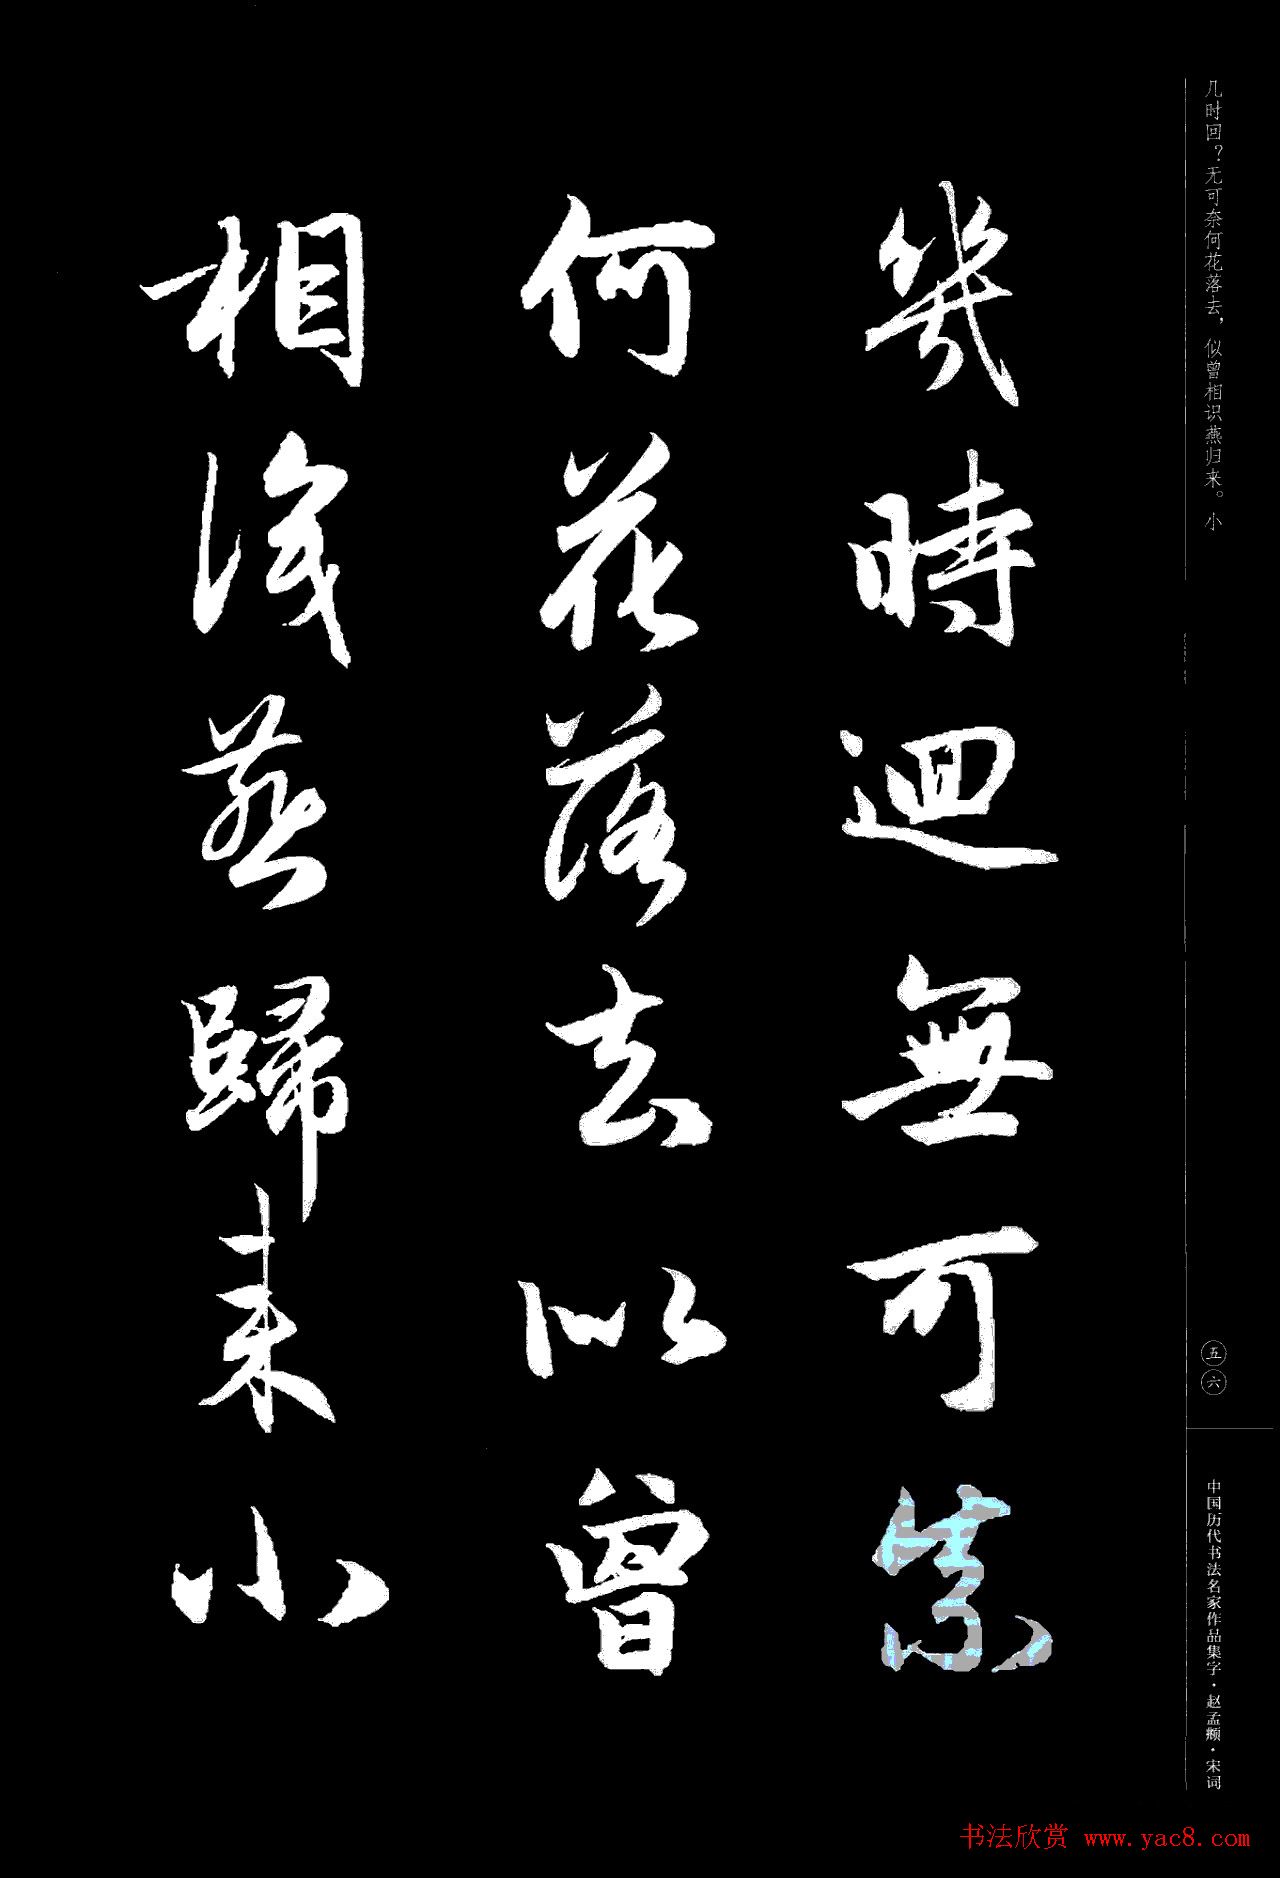 几时回？无可奈何花落去，似曾相识燕归来。小
幾時迴無可奈
何花落去似曾
相識燕歸来小
五六
中国历代书法名家作品集字·赵孟頫·宋词
书法欣赏 www.yac8.com